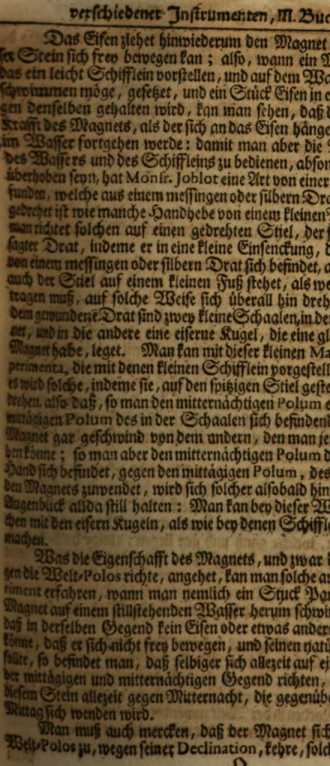 verschiedener Instrumenten, III. Buc
Das Eisen ziehet hinwiederum den Magnet
Stein sich frey bewegen kan; also, wann ein
das ein leicht Schifflein vorstellen, und auf dem Wa
schwimmen möge, gesetzet, und ein Stück Eisen in e
gen denselben gehalten wird, kan man sehen, daß d
Krafft des Magnets, als der sich an das Eisen hänge
im Wasser fortgehen werde: damit man aber die
des Wassers und des Schiffleins zu bedienen, abson
überhoben seyn, hat Monsr. Joblot eine Art von einer
funden, welche aus einem messingen oder silbern Dra
gedrehet ist wie manche Handhebe von einem kleinen
man richtet solchen auf einen gedrehten Stiel, der
sagter Drat, indeme er in eine kleine Einsenckung, d
von einem messingen oder silbern Drat sich befindet, a
auch der Stiel auf einem kleinen Fuß stehet, als we
tragen muß, auf solche Weise sich überall hin dreh
dem gewundene Drat sind zwey kleine Schaalen, in de
net, und in die andere eine eiserne Kugel, die eine gl
Magnet habe, leget. Man kan mit dieser kleinen Ma
perimenta, die mit denen kleinen Schifflein vorgestell
es wird solche, indeme sie, auf den spitzigen Stiel geste
drehen, also daß, so man den mitternächtigen Polum e
mittägigen Polum des in der Schaalen sich befinden
Magnet gar geschwind von dem andern, den man je
ben könne; so man aber den mitternächtigen Polum d
Hand sich befindet, gegen den mittägigen Polum, des
den Magnets zuwendet, wird sich solcher alsobald hin
Augenblick allda still halten: Man kan bey dieser W
chen mit den eisern Kugeln, als wie bey denen Schiffl
machen.
Was die Eigenschafft des Magnets, und zwar
gen die Welt-Polos richte, angehet, kan man solche a
riment erfahren, wann man nemlich ein Stuck Pa
Magnet auf einem stillstehenden Wasser herum schwi
daß in derselben Gegend kein Eisen oder etwas ander
könne, daß er sich nicht frey bewegen, und seinen natü
sollte, so befindet man, daß selbiger sich allezeit auf ei
der mittägigen und mitternächtigen Gegend richten,
diesem Stein allezeit gegen Mitternacht, die gegenübe
Mittag sich wenden wird.
Man muß auch mercken, daß der Magnet sich
Welt-Polos zu, wegen seiner Declination, kehre, solch